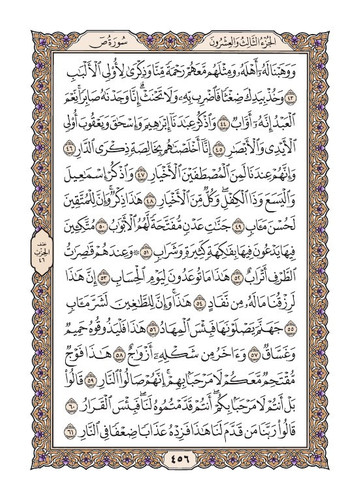 الجزء الثالث والعشرون سورة ص
وَوَهَبْنَا لَهُۥٓ أَهْلَهُۥ وَمِثْلَهُم مَّعَهُمْ رَحْمَةً مِّنَّا وَذِكْرَىٰ لِأُو۟لِى ٱلْأَلْبَـٰبِ
٤٣ وَخُذْ بِيَدِكَ ضِغْثًا فَٱضْرِب بِّهِۦ وَلَا تَحْنَثْ ۗ إِنَّا وَجَدْنَـٰهُ صَابِرًا ۚ نِّعْمَ
ٱلْعَبْدُ ۖ إِنَّهُۥٓ أَوَّابٌ ٤٤ وَٱذْكُرْ عِبَـٰدَنَآ إِبْرَٰهِيمَ وَإِسْحَـٰقَ وَيَعْقُوبَ أُو۟لِى
ٱلْأَيْدِى وَٱلْأَبْصَـٰرِ ٤٥ إِنَّآ أَخْلَصْنَـٰهُم بِخَالِصَةٍ ذِكْرَى ٱلدَّارِ ٤٦
وَإِنَّهُمْ عِندَنَا لَمِنَ ٱلْمُصْطَفَيْنَ ٱلْأَخْيَارِ ٤٧ وَٱذْكُرْ إِسْمَـٰعِيلَ
وَٱلْيَسَعَ وَذَا ٱلْكِفْلِ ۖ وَكُلٌّ مِّنَ ٱلْأَخْيَارِ ٤٨ هَـٰذَا ذِكْرٌ ۚ وَإِنَّ لِلْمُتَّقِينَ
لَحُسْنَ مَـَٔابٍ ٤٩ جَنَّـٰتِ عَدْنٍ مُّفَتَّحَةً لَّهُمُ ٱلْأَبْوَٰبُ ٥٠ مُتَّكِـِٔينَ
فِيهَا يَدْعُونَ فِيهَا بِفَـٰكِهَةٍ كَثِيرَةٍ وَشَرَابٍ ٥١ ۞ وَعِندَهُمْ قَـٰصِرَٰتُ
ٱلطَّرْفِ أَتْرَابٌ ٥٢ هَـٰذَا مَا تُوعَدُونَ لِيَوْمِ ٱلْحِسَابِ ٥٣ إِنَّ هَـٰذَا
لَرِزْقُنَا مَا لَهُۥ مِن نَّفَادٍ ٥٤ هَـٰذَا ۚ وَإِنَّ لِلطَّـٰغِينَ لَشَرَّ مَـَٔابٍ
٥٥ جَهَنَّمَ يَصْلَوْنَهَا فَبِئْسَ ٱلْمِهَادُ ٥٦ هَـٰذَا فَلْيَذُوقُوهُ حَمِيمٌ
وَغَسَّاقٌ ٥٧ وَءَاخَرُ مِن شَكْلِهِۦٓ أَزْوَٰجٌ ٥٨ هَـٰذَا فَوْجٌ
مُّقْتَحِمٌ مَّعَكُمْ ۖ لَا مَرْحَبًۢا بِهِمْ ۚ إِنَّهُمْ صَالُوا۟ ٱلنَّارِ ٥٩ قَالُوا۟
بَلْ أَنتُمْ لَا مَرْحَبًۢا بِكُمْ ۖ أَنتُمْ قَدَّمْتُمُوهُ لَنَا ۖ فَبِئْسَ ٱلْقَرَارُ ٦٠
قَالُوا۟ رَبَّنَا مَن قَدَّمَ لَنَا هَـٰذَا فَزِدْهُ عَذَابًا ضِعْفًا فِى ٱلنَّارِ ٦١
الحزب
٤٦
٤٥٦